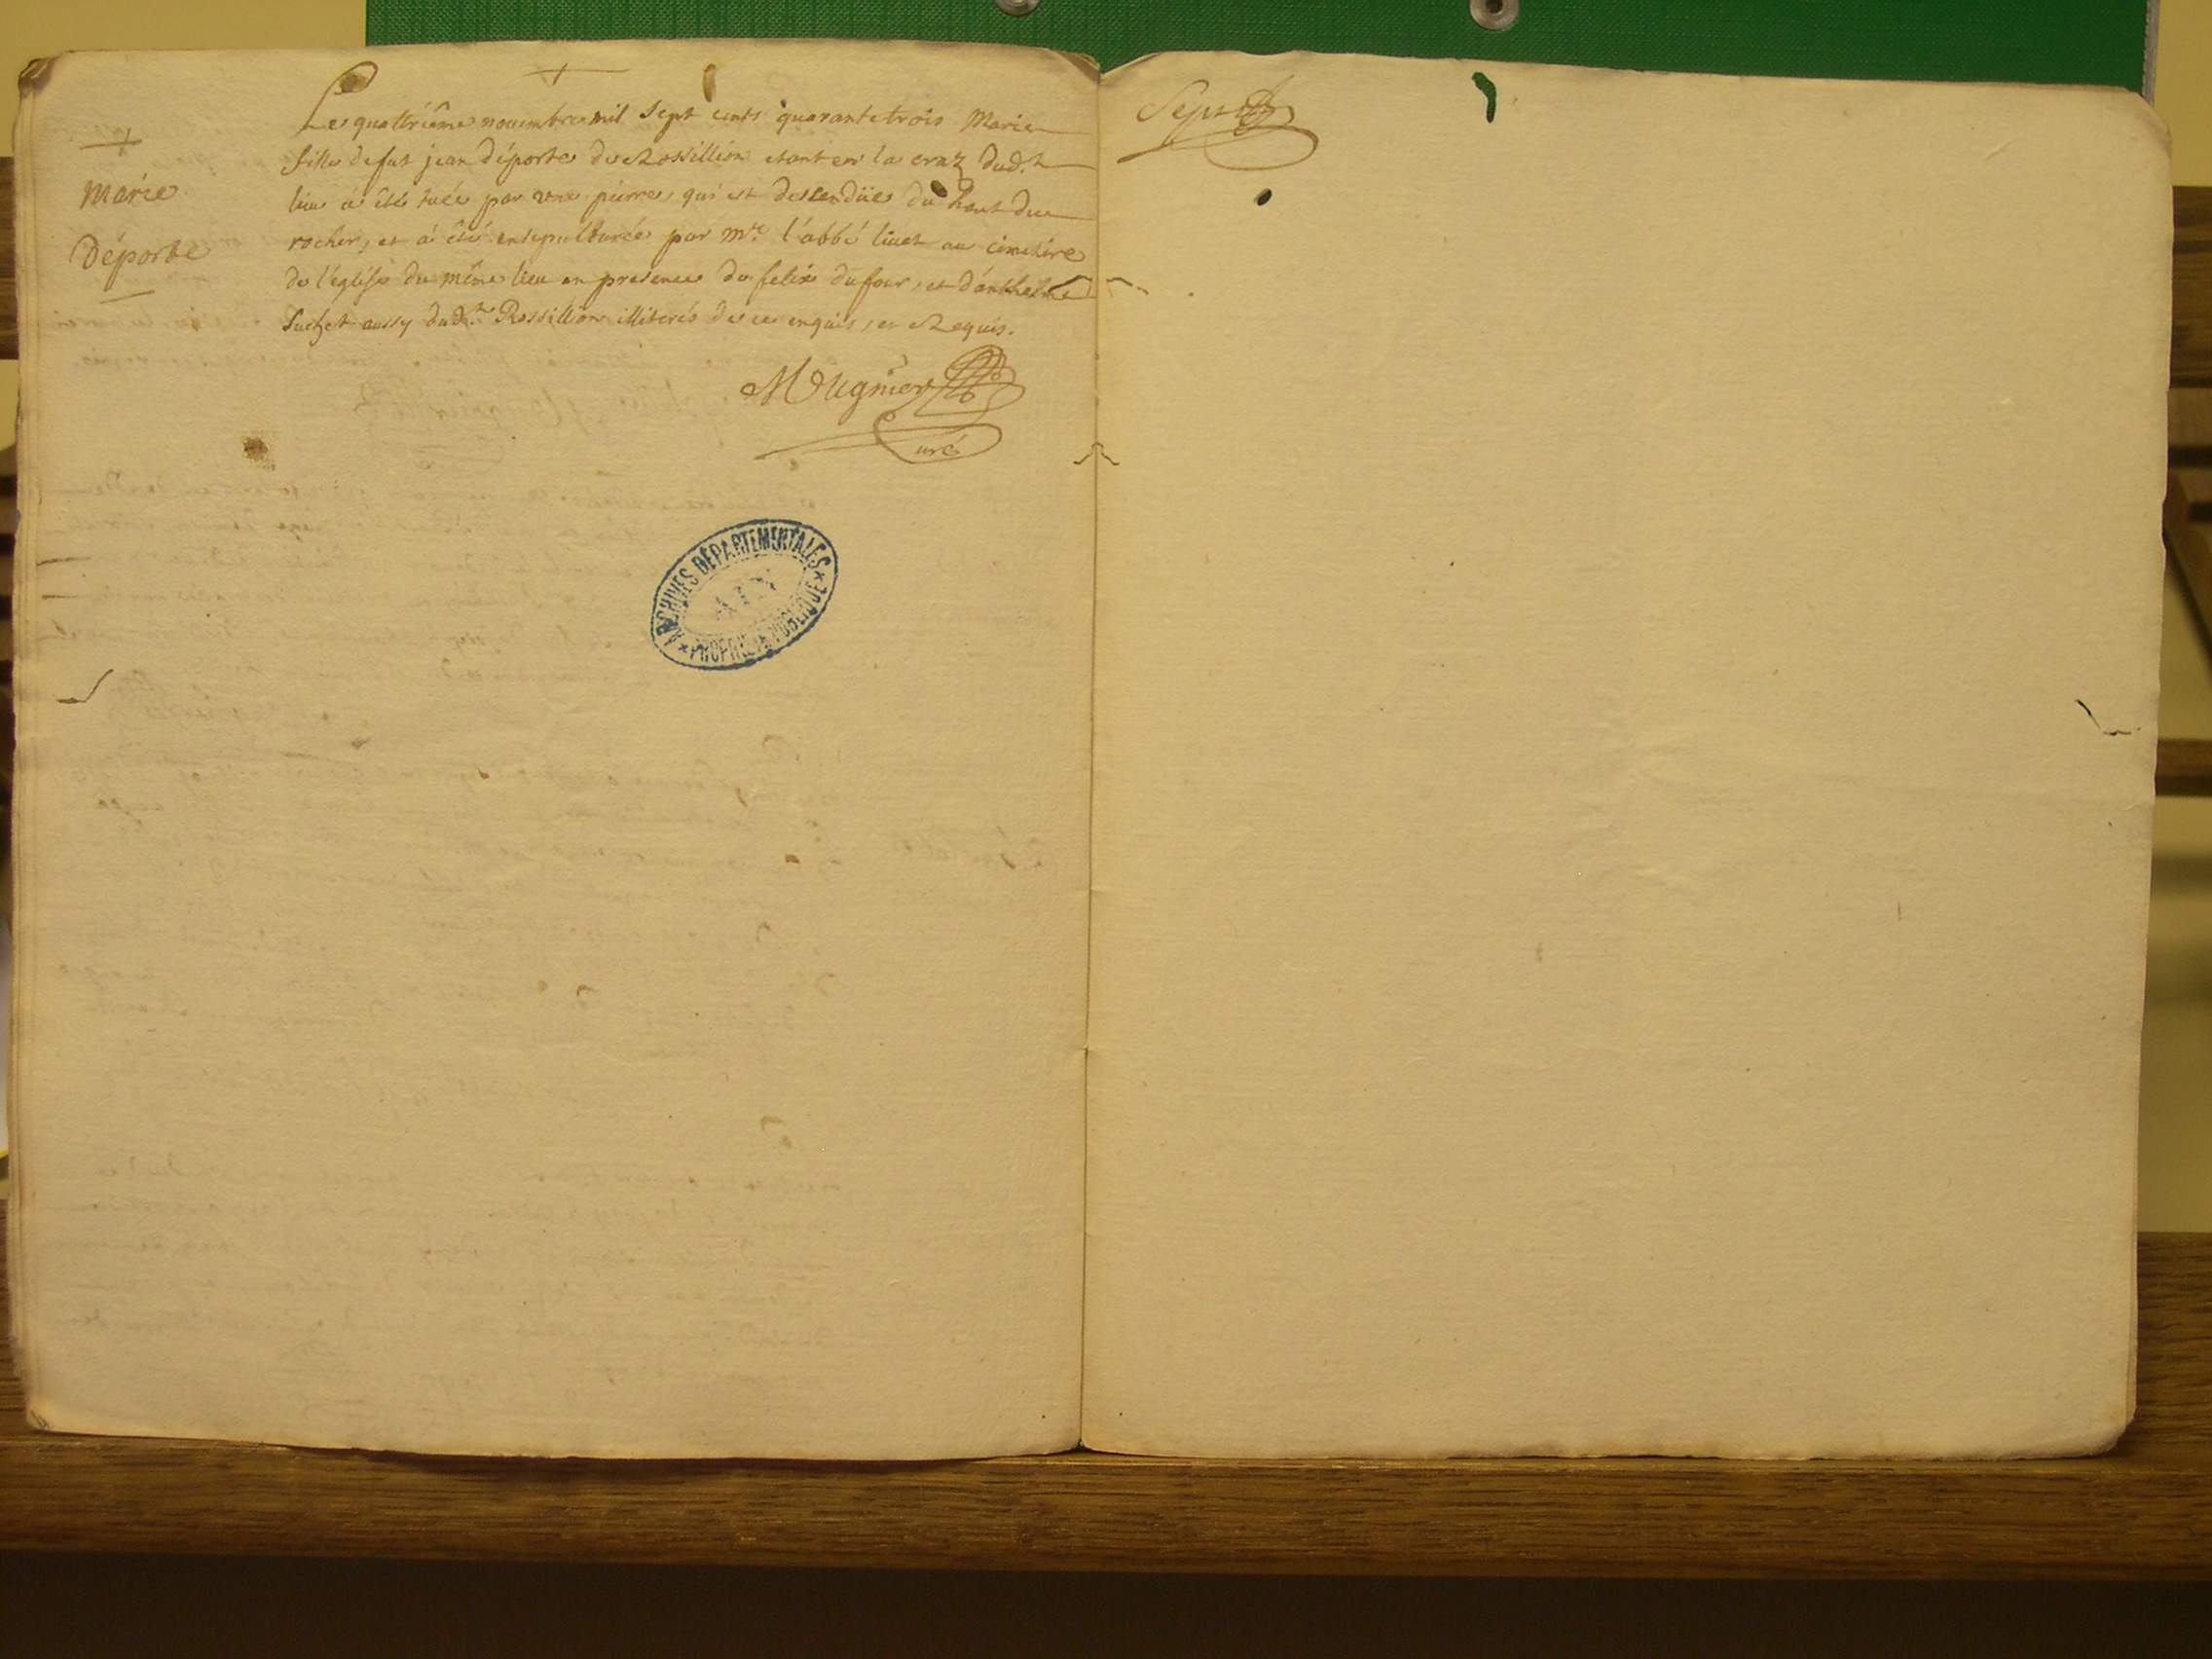 Marie
Déporte
Le quattriéme novembre mil sept cents quarante trois Marie
fille de fut jean déporte de Rossillion etant en la craz dud.t
lieu a été tuée par une pierre, qui est descendüe du haut du
rocher, et a été ensepulturée par m.re l'abbé livet au cimetire
de l'église du même lieu en presence de felix dufour, et d'anthelme
Suchet aussy dud.t Rossillion illiterés de ce enquis, et Requis.
Mugnier
Curé
ARCHIVES DÉPARTEMENTALES
AIN
PROPRIÉTÉ PUBLIQUE
Sept